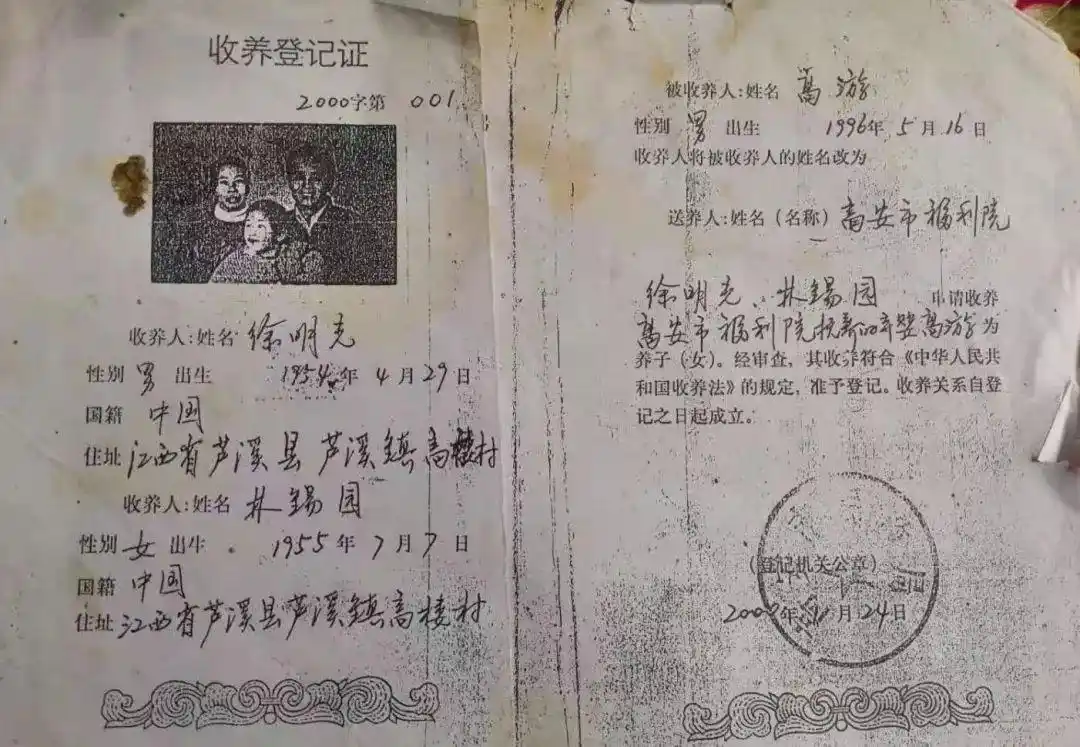 收养登记证
2000字第 001
收养人:姓名 徐明克
性别 男 出生 1954年 4月29日
国籍 中国
住址 江西省芦溪县芦溪镇高楼村
收养人:姓名 林錫园
性别 女 出生 1955年7月7日
国籍 中国
住址 江西省芦溪县芦溪镇高楼村
被收养人:姓名 高游
性别 男 出生 1996年5月16日
收养人将被收养人的姓名改为
送养人:姓名(名称) 高安市福利院
徐明克、林錫园 申请收养
高安市福利院抚养的弃婴高游为
养子(女)。经审查,其收养符合《中华人民共
和国收养法》的规定,准予登记。收养关系自登
记之日起成立。
(登记机关公章)
2000年11月24日